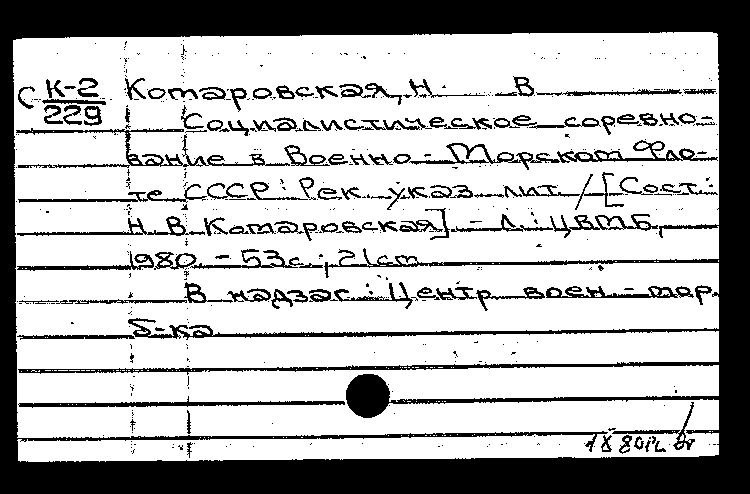 С К-2 Комаровская, Н. В
229 Социалистическое соревно-
вание в Военно-Морском Фло-
те СССР: Рек. указ. лит. / [Сост.:
Н. В. Комаровская]. - Л.: ЦВМБ,
1980. - 53с.; 21см
В надзаг.: Центр. воен.-мор.
б-ка